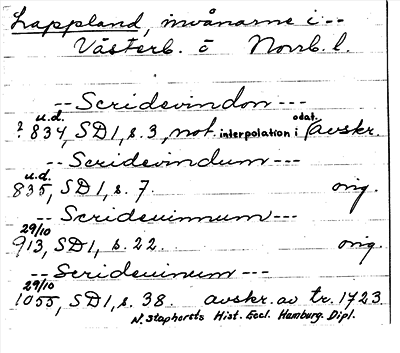 Lappland, invånarne i --
Västerb. o Norrb. l.
-- Scridevindon ---
u.d. odat.
? 834, SD1, s. 3, not. interpolation i avskr.
-- Scridevindum ---
u.d.
835, SD1, s. 7. orig.
-- Scrideuinnum ---
29/10
913, SD1, s. 22. orig.
-- Scrideuinum ---
29/10
1055, SD1, s. 38. avskr. av tr. 1723.
N. Staphorsts Hist. Eccl. Hamburg. Dipl.